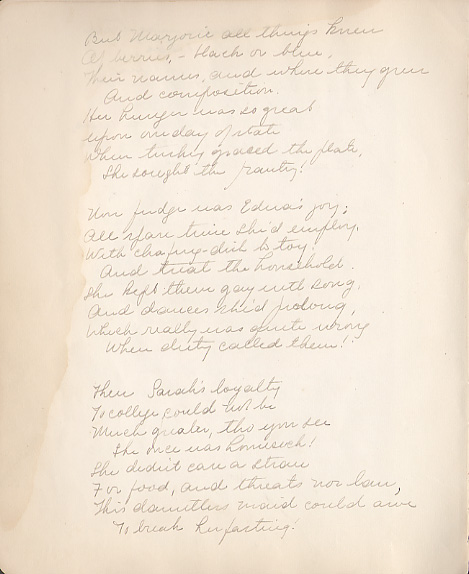 But Marjorie all things knew
Of berries, - black or blue,
Their names, and where they grew
And composition.
Her hunger was so great
upon one day of state
When turkey graced the plate,
She sought the pantry!

Now fudge was Edna's joy;
All spare time she'd employ
With chafing-dish to toy
And treat the household.
She kept them gay with song,
And dances she'd prolong,
Which really was quite wrong
When duty called them!

Then Sarah's loyalty
To college could not be
Much greater, tho you see
She once was homesick!
She didn't care a straw
For food, and threats nor law,
This dauntless maid could awe
To break her fasting!